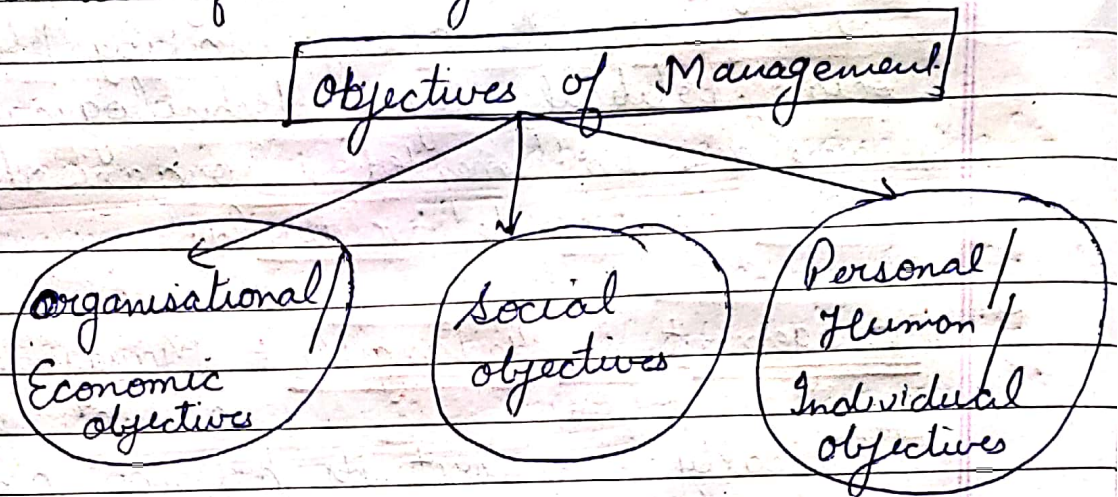 Objectives of Management
Organisational/
Economic
objectives
Social
objectives
Personal/
Human/
Individual
objectives